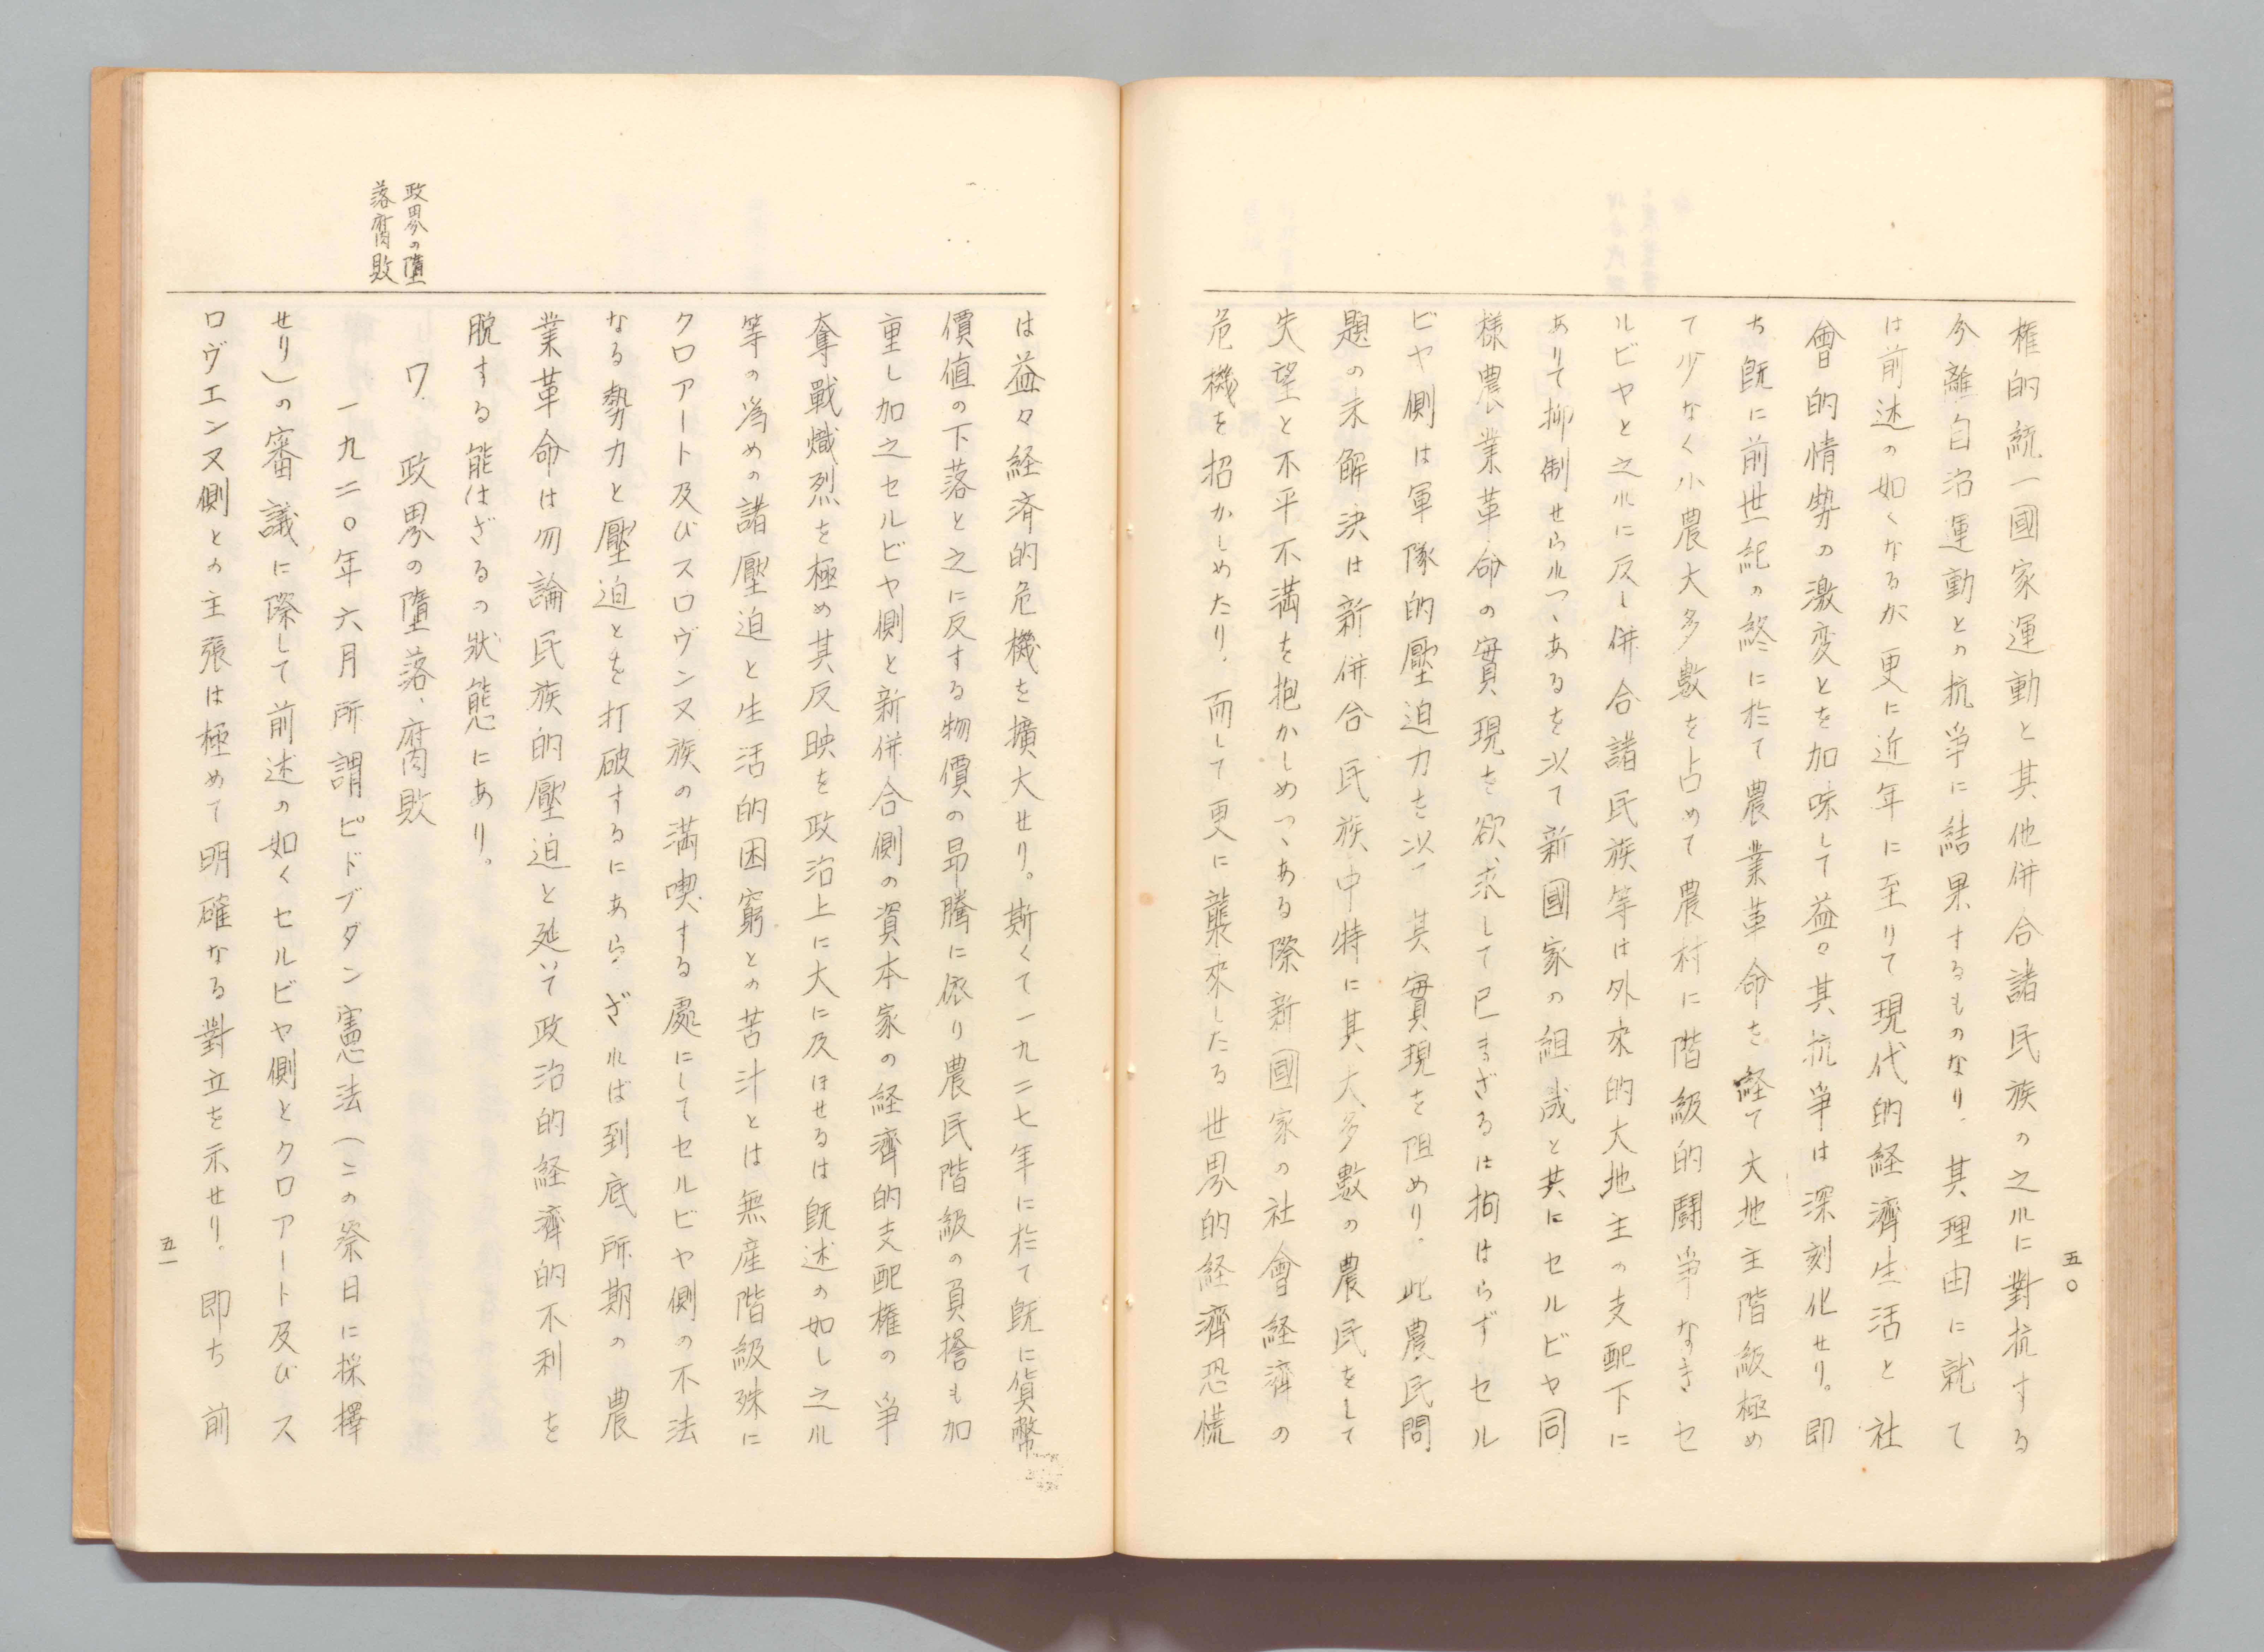 五〇
権的統一國家運動と其他併合諸民族の之ルに對抗する
分離自治運動との抗爭に結果するものなり.其理由に就て
は前述の如くなるが更に近年に至りて現代的経濟生活と社
會的情勢の激変とを加味して益々其抗爭は深刻化せり。即
ち既に前世紀の終に於て農業革命を経て大地主階級極め
て少なく小農大多數を占めて農村に階級的鬪爭なきセ
ルビヤと之ルに反し併合諸民族等は外來的大地主の支配下に
ありて抑制せられつゝあるを以て新國家の組成と共にセルビヤ同
様農業革命の實現を欲求して已まざるは拘はらずセル
ビヤ側は軍隊的壓迫力を以て其實現を阻めり.此農民問
題の未解決は新併合民族中特に其大多數の農民をして
失望と不平不満を抱かしめつゝある際新國家の社會経濟の
危機を招かしめたり.而して更に襲來したる世界的経濟恐慌
は益々経済的危機を擴大せり。斯くて一九二七年に於て既に貨幣
價値の下落と之に反する物價の昻騰に依り農民階級の負擔も加
重し加之セルビヤ側と新併合側の資本家の経濟的支配権の爭
奪戰熾烈を極め其反映を政治上に大に及ほせるは既述の如し之ル
等の為めの諸壓迫と生活的困窮との苦汁とは無産階級殊に
クロアート及びスロヴンヌ族の満喫する處にしてセルビヤ側の不法
なる勢力と壓迫とを打破するにあらざれば到底所期の農
業革命は勿論民族的壓迫と延いて政治的経濟的不利を
脱する能はざるの狀態にあり。
政界の墮
落腐敗
ワ.政界の墮落、腐敗
一九二〇年六月所謂ピドブダン憲法(この祭日に採擇
せり)の審議に際して前述の如くセルビヤ側とクロアート及びス
ロヴエンヌ側との主張は極めて明確なる對立を示せり.即ち前
五一